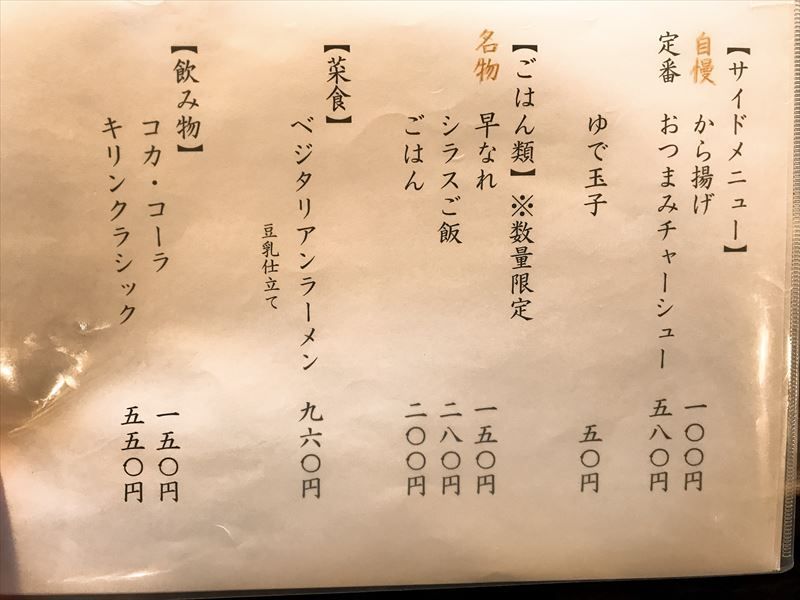 【サイドメニュー】
自慢 から揚げ 一〇〇円
定番 おつまみチャーシュー 五八〇円
ゆで玉子 五〇円
【ごはん類】※数量限定
名物 早なれ 一五〇円
シラスご飯 二八〇円
ごはん 二〇〇円
【菜食】
ベジタリアンラーメン 九六〇円
豆乳仕立て
【飲み物】
コカ・コーラ 一五〇円
キリンクラシック 五五〇円